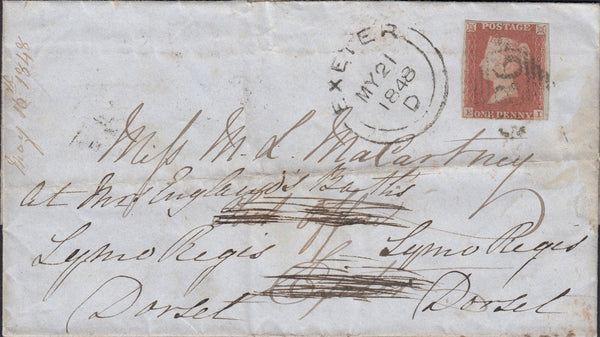 May 16th 1848
EXETER
MY 21
1848
D
POSTAGE
ONE PENNY
Miss M. L. Macartney
at Mrs England's Baths
Lyme Regis
Lyme Regis
Dorset
Dorset